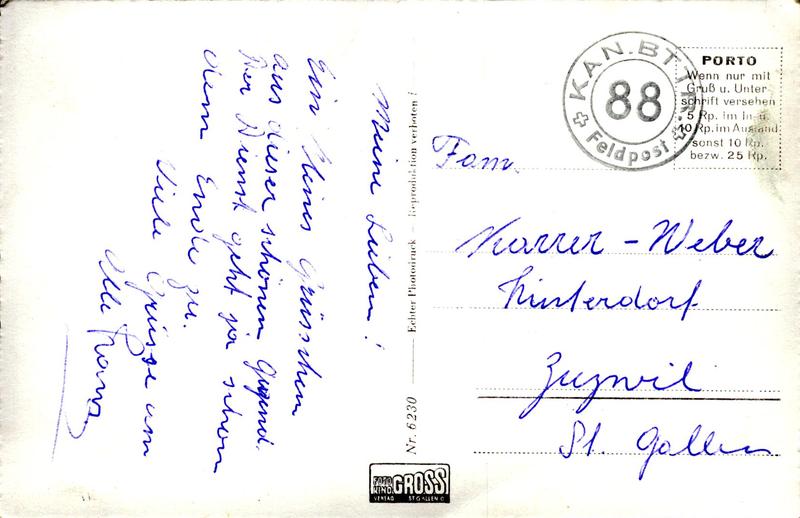 Meine Lieben!
Ein kleines Grüsschen
aus dieser schönen Gegend.
Der Dienst geht ja schon
dem Ende zu.
Viele Grüsse
Franz
Echter Photodruck — Reproduktion verboten!
Nr. 6230
FOTO
KINO
GROSS
VERLAG ST. GALLEN
KAN. BTTR.
88
Feldpost
PORTO
Wenn nur mit
Gruß u. Unter-
schrift versehen
5 Rp. im In- u.
10 Rp. im Ausland
sonst 10 Rp.
bezw. 25 Rp.
Fam.
Karrer-Weber
Hinterdorf
Zuzwil
St. Gallen